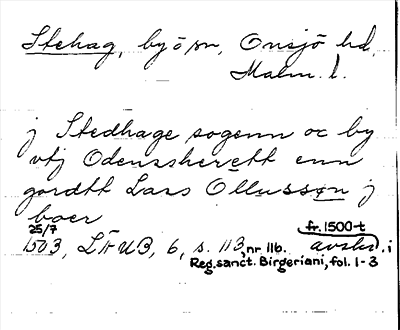 Stehag, by ö sn, Onsjö hd,
Malm. l.
j Stedhage sogenn oc by
vtj Odenssherett enn
gardtt Lars Ollusson j
boer
25/7 fr. 1500-t
1503, LÄUB, 6, s. 113, nr 11b. avskr. i
Reg. sanct. Birgeriani, fol. 1-3